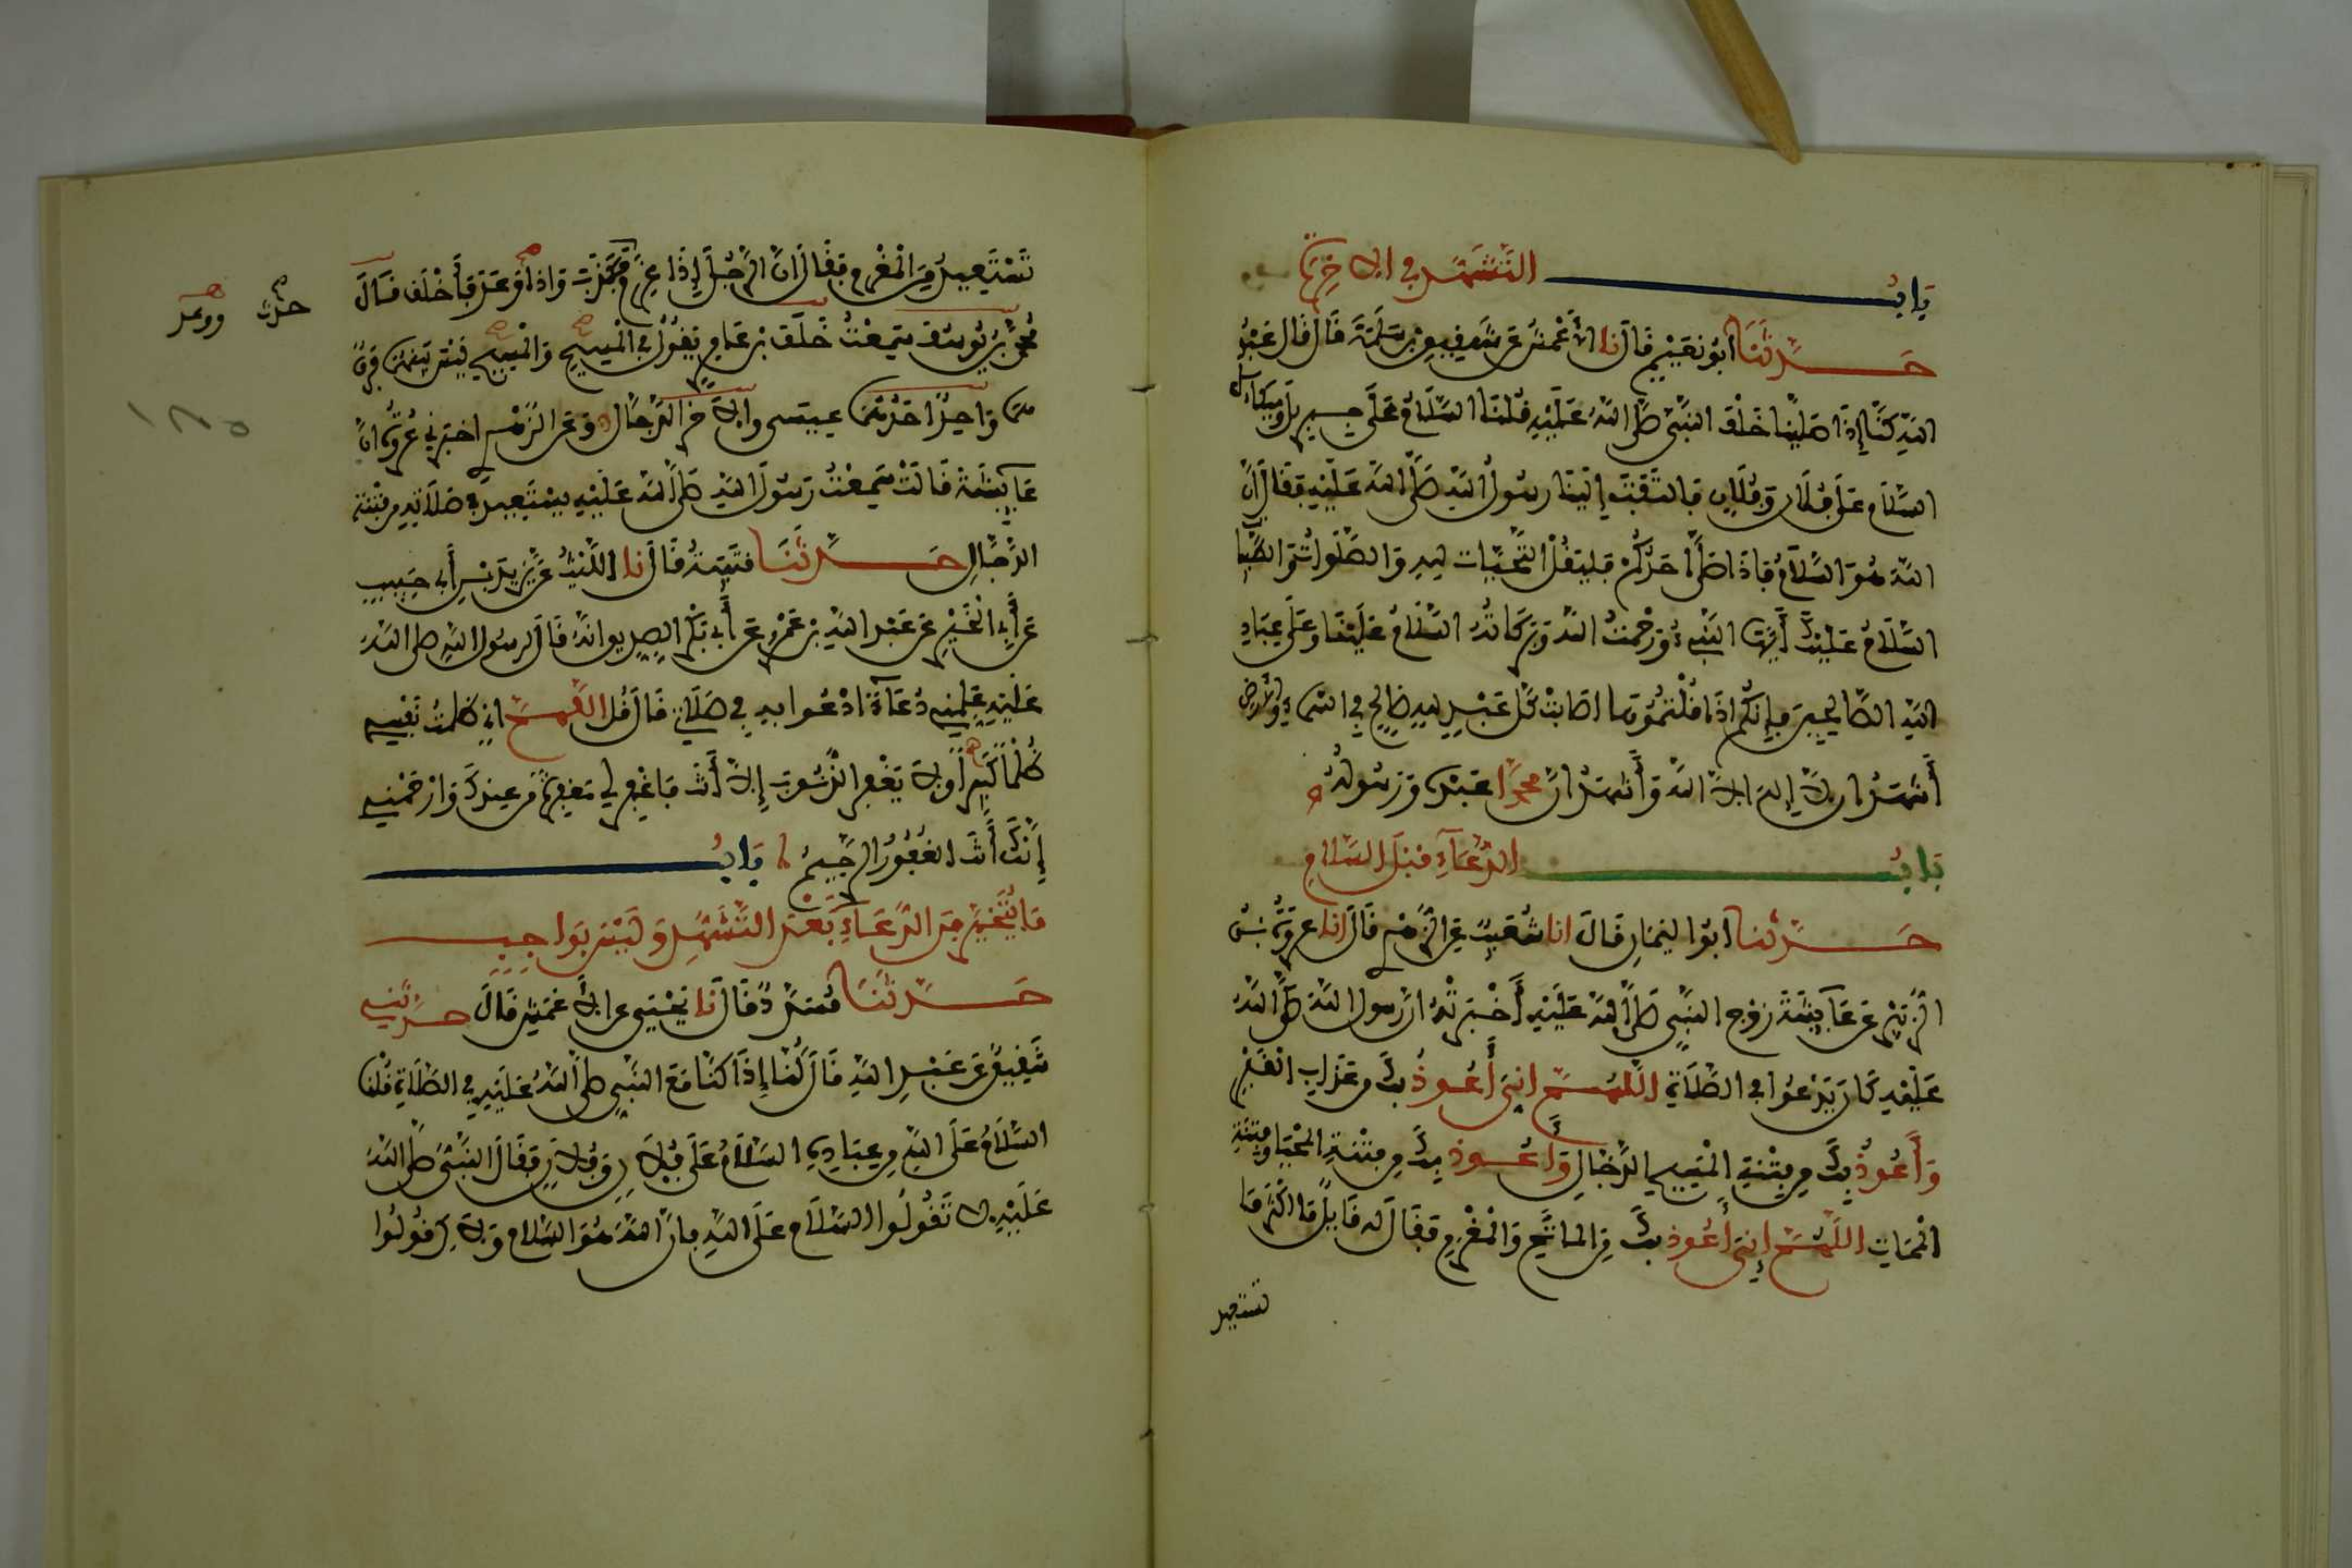 بَابُ التَّشَهُّدِ في الاخِرَةِ
حَدَّثَنَا أَبُو نُعَيْمٍ قَالَ نا الأَعْمَشُ عَن شَقِيقِ بْنِ سَلَمَةَ قَالَ قَالَ عَبْدُ
اللَّهِ كُنَّا إِذَا صَلَّيْنَا خَلْفَ النَّبِيِّ صَلَّى اللَّهُ عَلَيْهِ قُلْنَا السَّلَامُ عَلَى جِبْرِيلَ وَمِيكَائِلَ
السَّلَام عَلَى فُلَانٍ وَفُلَانٍ فَالتَفَتَ إِلَيْنَا رَسُولُ اللَّهِ صَلَّى اللَّهُ عَلَيْهِ فَقَالَ إِنَّ
اللَّهَ هُوَ السَّلَامُ فَإِذَا صَلَّى أَحَدُكُمْ فَلْيَقُلْ التَّحِيَّات لِلهِ وَالصَّلَوَاتُ وَالطَّيِّبَا
السَّلَامُ عَلَيْكَ أَيُّهَا النَّبِيءُ وَرَحْمَتُ اللَّهِ وَبَرَكَاتُهُ السَّلَامُ عَلَيْنَا وَعَلَى عِبَادِ
اللَّهِ الصَّالِحِينَ فَإِنَّكُمْ إِذَا قُلْتُمُوهَا أَصَابَتْ كُلَّ عَبْدٍ لِلهِ صَالِحٍ فِي السَّمَاءِ وَالأَرْضِ
أَشْهَدُ ان لَّا إِلَهَ الَّا اللَّهُ وَأَشْهَدُ انَّ مُحَمَّدًا عَبْدُهُ وَرَسُولُهُ
بَابُ الدُّعَاءِ قَبْلَ السَّلَامِ
حَدَّثَنَا أَبُوا اليَمَانِ قَالَ انا شُعَيْبٌ عَنِ الزُّهْرِي قَالَ انا عُرْوَةُ بْنُ
الزُّبَيْرِ عَنْ عَائِشَةَ زَوْجِ النَّبِيِّ صَلَّى اللَّهُ عَلَيْهِ أَخْبَرَتْهُ انَّ رَسُولَ اللَّهِ صَلَّى اللَّهُ
عَلَيْهِ كَانَ يَدْعُوا في الصَّلَاةِ اللَّهُمَّ إِنِّي أَعُوذُ بِكَ مِنْ عَذَابِ الْقَبْرِ
وَأَعُوذُ بِكَ مِنْ فِتْنَةِ الْمَسِيحِ الدَّجَّالِ وَأَعُوذُ بِكَ مِنْ فِتْنَةِ الْمَحْيَا وَفِتْنَةِ
الْمَمَاتِ اللَّهُمَّ إِنِّي أَعُوذُ بِكَ مِنَ الْمَاثَمِ وَالْمَغْرَمِ فَقَالَ لَهُ قَائِلٌ مَا أَكْثَرَ مَا
تستعيذ
تَسْتَعِيذُ مِنَ الْمَغْرَمِ فَقَالَ إِنَّ الرَّجُلَ إِذَا غَرِمَ فَكَذَبَ وَإِذَا وَعَدَ فَأَخْلَفَ قَالَ
حدّث ووعد
مُحَمَّدُ بْنُ يُوسُفَ سَمِعْتُ خَلَفَ بْنَ عَامِرٍ يَقُولُ في الْمَسِيحِ وَالْمَسِيحِ لَيْسَ بَيْنَهُمَا فَرْقٌ
هُمَا وَاحِدٌ أَحَدُهُمَا عِيسَى وَالاخَرُ الدَّجَّالُ وَعَنِ الزُّهْرِي أَخْبَرَنِي عُرْوَةُ انَّ
عَائِشَةَ قَالَتْ سَمِعْتُ رَسُولَ اللَّهِ صَلَّى اللَّهُ عَلَيْهِ يَسْتَعِيذُ في صَلَاتِهِ مِن فِتْنَةِ
الدَّجَّالِ حَدَّثَنَا قُتَيْبَةُ قَالَ نا اللَّيْثُ عَنْ يَزِيدَ بْنِ أَبِي حَبِيبٍ
عَنْ أَبِي الْخَيْرِ عَنْ عَبْدِ اللَّهِ بْنِ عَمْرٍو عَنْ أَبِي بَكْرٍ الصِّدِّيقِ انَّهُ قَالَ لِرَسُولِ اللَّهِ صَلَّى اللَّهُ
عَلَيْهِ عَلِّمْنِي دُعَاءً أَدْعُوا بِهِ فِي صَلَاتِي قَالَ قُلِ اللَّهُمَّ إِنِّي ظَلَمْتُ نَفْسِي
ظُلْمًا كَثِيرًا وَلَا يَغْفِرُ الذُّنُوبَ إِلَّا أَنْتَ فَاغْفِرْ لِي مَغْفِرَةً مِنْ عِنْدِكَ وَارْحَمْنِي
إِنَّكَ أَنْتَ الْغَفُورُ الرَّحِيمُ بَابُ
مَا يُتَخَيَّرُ مِنَ الدُّعَاءِ بَعْدَ التَّشَهُّدِ وَلَيْسَ بِوَاجِبٍ
حَدَّثَنَا مُسَدَّدٌ قَالَ نَا يَحْيَى عن الأَعْمَشِ قَالَ حَدَّثَنِي
شَقِيقٌ عَنْ عَبْدِ اللَّهِ قَالَ كُنَّا إِذَا كُنَّا مَعَ النَّبِيِّ صَلَّى اللَّهُ عَلَيْهِ فِي الصَّلَاةِ قُلْنَا
السَّلَامُ عَلَى اللَّهِ مِنْ عِبَادِهِ السَّلَامُ عَلَى فُلَانٍ وَفُلَانٍ فَقَالَ النَّبِيُّ صَلَّى اللَّهُ
عَلَيْهِ لَا تَقُولُوا السَّلَامُ عَلَى اللَّهِ فَإِنَّ اللَّهَ هُوَ السَّلَامُ وَلَاكِنْ قُولُوا